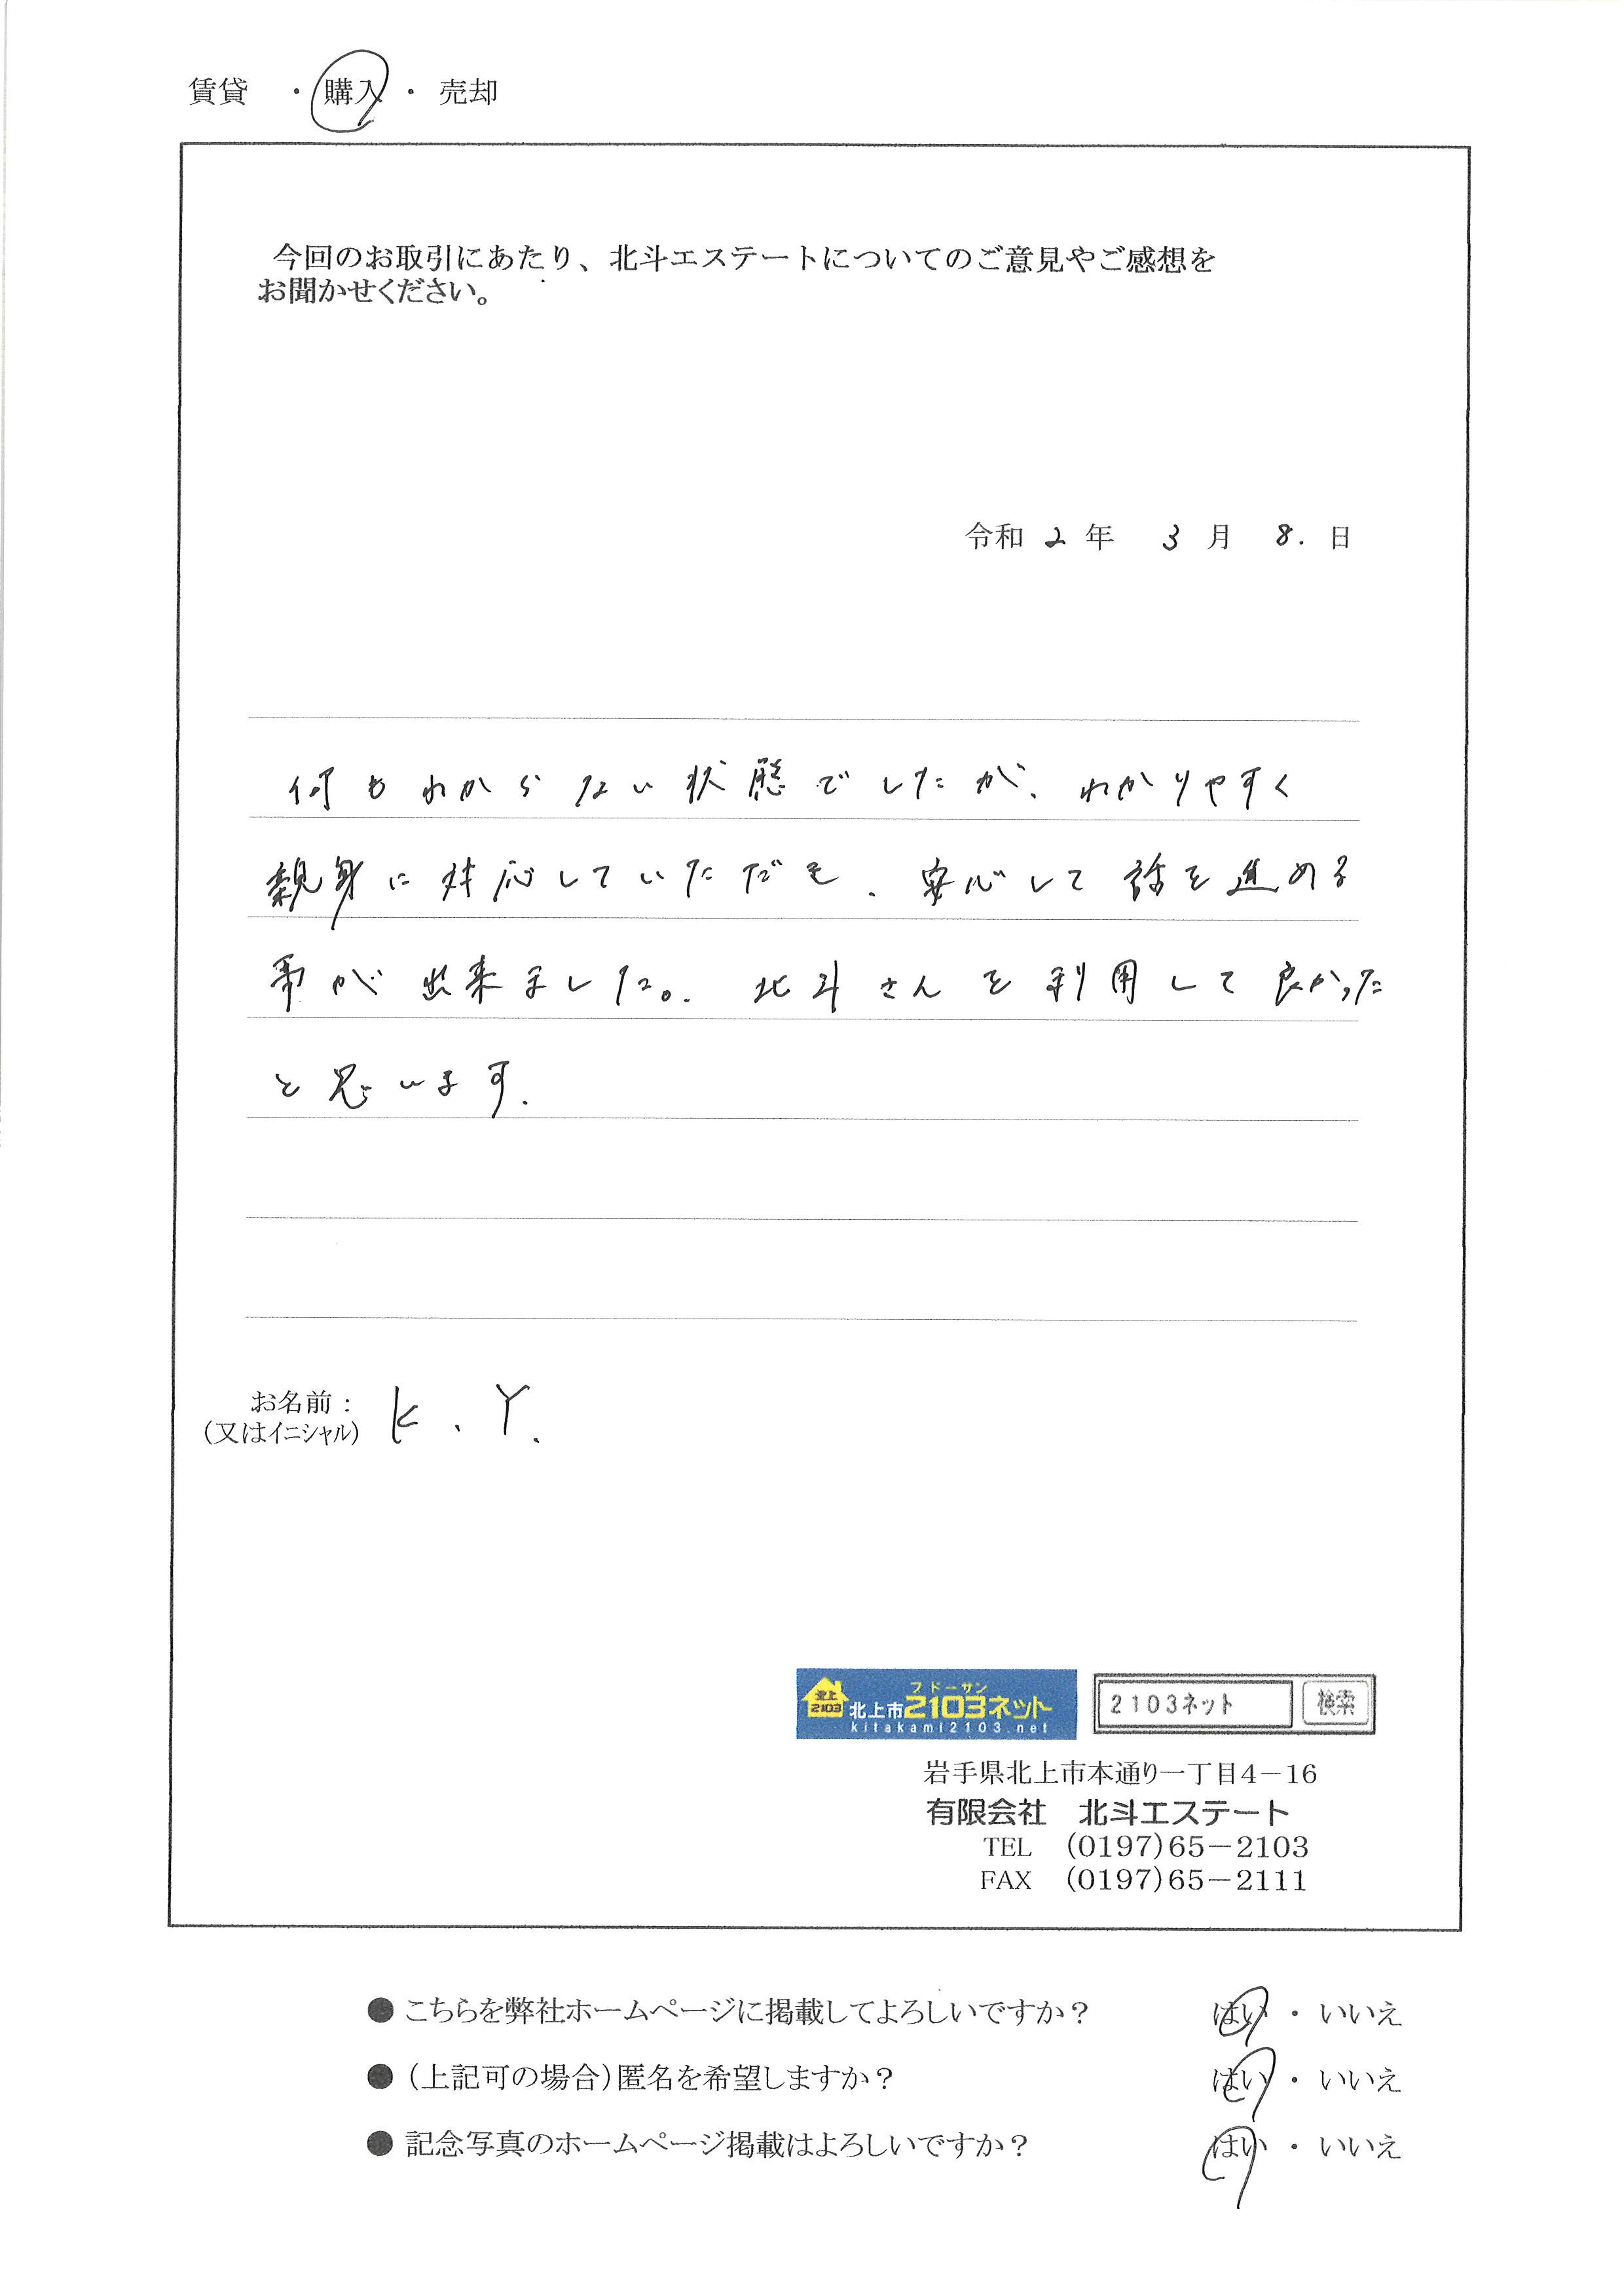 賃貸 ・ 購入 ・ 売却
今回のお取引にあたり、北斗エステートについてのご意見やご感想を
お聞かせください。
令和 2 年 3 月 8. 日
何もわからない状態でしたが、わかりやすく
親身に対応していただき、安心して話を進める
事が出来ました。北斗さんを利用して良かった
と思います.
お名前： K.Y.
（又はイニシャル）
フドーサン
北上 2103 北上市2103ネット
kitakami2103.net
2103ネット 検索
岩手県北上市本通り一丁目4－16
有限会社 北斗エステート
TEL (0197)65－2103
FAX (0197)65－2111
● こちらを弊社ホームページに掲載してよろしいですか？ はい ・ いいえ
● （上記可の場合）匿名を希望しますか？ はい ・ いいえ
● 記念写真のホームページ掲載はよろしいですか？ はい ・ いいえ